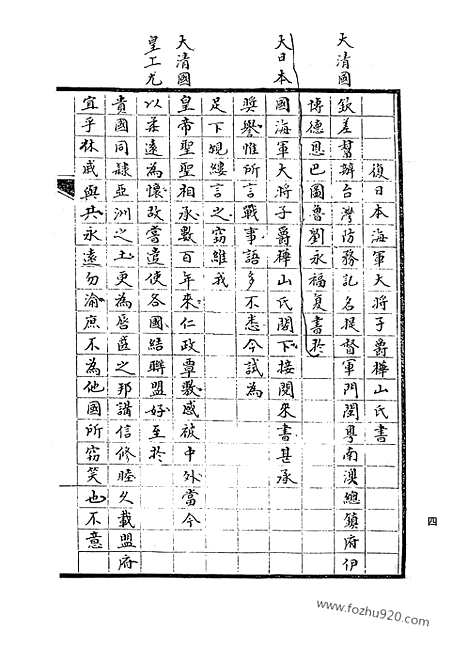 復日本海軍大將子爵樺山氏書
大清國欽差幫辦台灣防務記名提督軍門閩粵南澳總鎮府伊
博德恩巴圖魯劉永福夏書於
大日本國海軍大將子爵樺山氏閣下接閱來書甚承
獎譽惟所言戰事語多不悉今試為
足下覼縷言之竊維我
大清國皇帝聖聖相承數百年來仁政覃敷感被中外當今
皇上尤以柔遠為懷故嘗遣使各國結聯盟好至於
貴國同隸亞洲之土更為唇齒之邦講信修睦久載盟府
宜乎休戚與共永遠勿渝庶不為他國所竊笑也不意
四
www.fozhu920.com